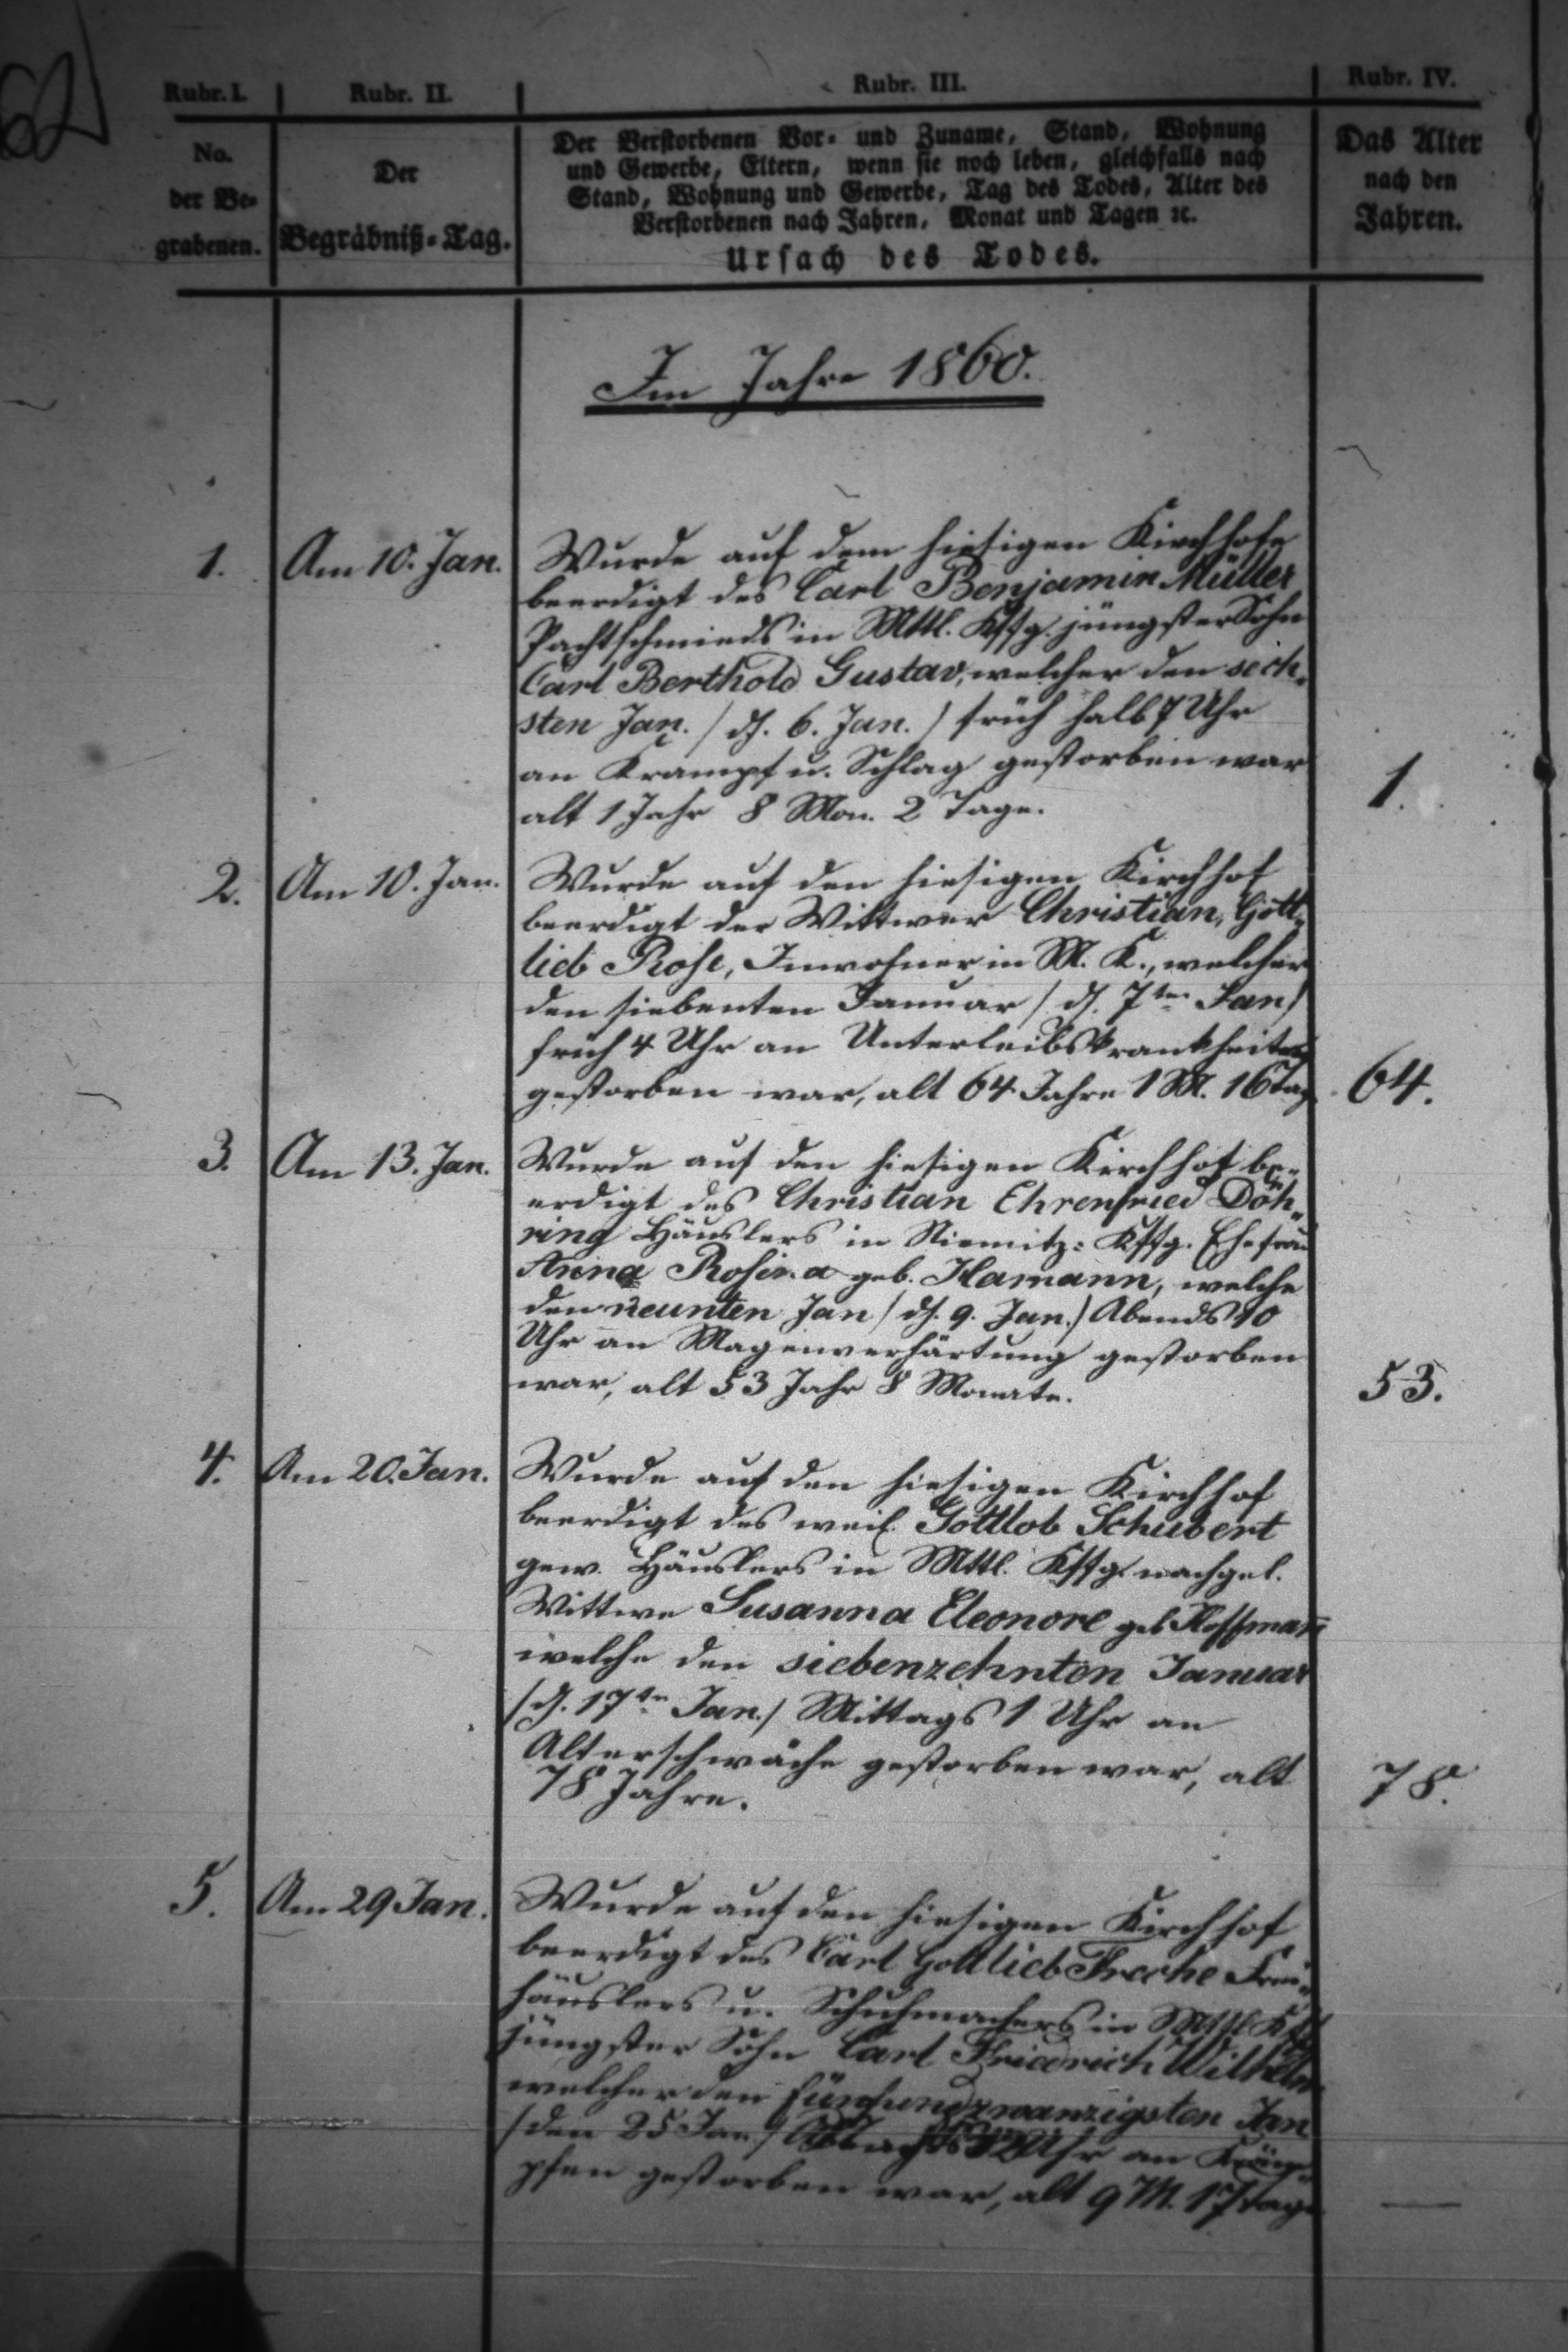 62
Rubr. I. Rubr. II. Rubr. III. Rubr. IV.
No.
der Be-
grabenen.
Der
Begräbniß-Tag.
Der Verstorbenen Vor- und Zuname, Stand, Wohnung
und Gewerbe, Eltern, wenn sie noch leben, gleichfalls nach
Stand, Wohnung und Gewerbe, Tag des Todes, Alter des
Verstorbenen nach Jahren, Monat und Tagen ꝛc.
Ursach des Todes.
Das Alter
nach den
Jahren.
Im Jahre 1860.
1. Am 10. Jan. Wurde auf dem hiesigen Kirchhofe
beerdigt des Carl Benjamin Müller
Pachtschmieds in Mttl. Kffg. jüngster Sohn
Carl Berthold Gustav, welcher den sech-
sten Jan. / d. 6. Jan. / früh halb 7 Uhr
an Krampf u. Schlag gestorben war
alt 1 Jahr 8 Mon. 2 Tage. 1.
2. Am 10. Jan. Wurde auf den hiesigen Kirchhof
beerdigt der Wittwer Christian, Gott-
lieb Rose, Inwohner in M. K., welcher
den siebenten Januar / d. 7ten Jan /
früh 4 Uhr an Unterleibskrankheit
gestorben war, alt 64 Jahre 1 M. 16 Tag 64.
3. Am 13. Jan. Wurde auf den hiesigen Kirchhof be-
erdigt des Christian Ehrenfried Döh-
ring Häuslers in Niemitz-Kffg. Ehefrau
Anna Rosina geb. Hamann, welche
den neunten Jan / d. 9. Jan. / Abends 10
Uhr an Magenverhärtung gestorben
war, alt 53 Jahr 8 Monate. 53.
4. Am 20. Jan. Wurde auf den hiesigen Kirchhof
beerdigt des weil. Gottlob Schubert
gew. Häuslers in Mttl. Kffg. nachgel.
Wittwe Susanna Eleonore geb Hoffmañ
welche den siebenzehnten Januar
/ d. 17ten Jan. / Mittags 1 Uhr an
Alterschwäche gestorben war, alt
78 Jahre. 78.
5. Am 29 Jan. Wurde auf den hiesigen Kirchhof
beerdigt des Carl Gottlieb Freche Frei-
häuslers u. Schuhmachers in Mttl K
jüngster Sohn Carl Friedrich Wilhelm
welcher den fünfundzwanzigsten Jan
/ den 25 Jan / Uhr an Kräm-
pfen gestorben war, alt 9 M. 17 Tage —